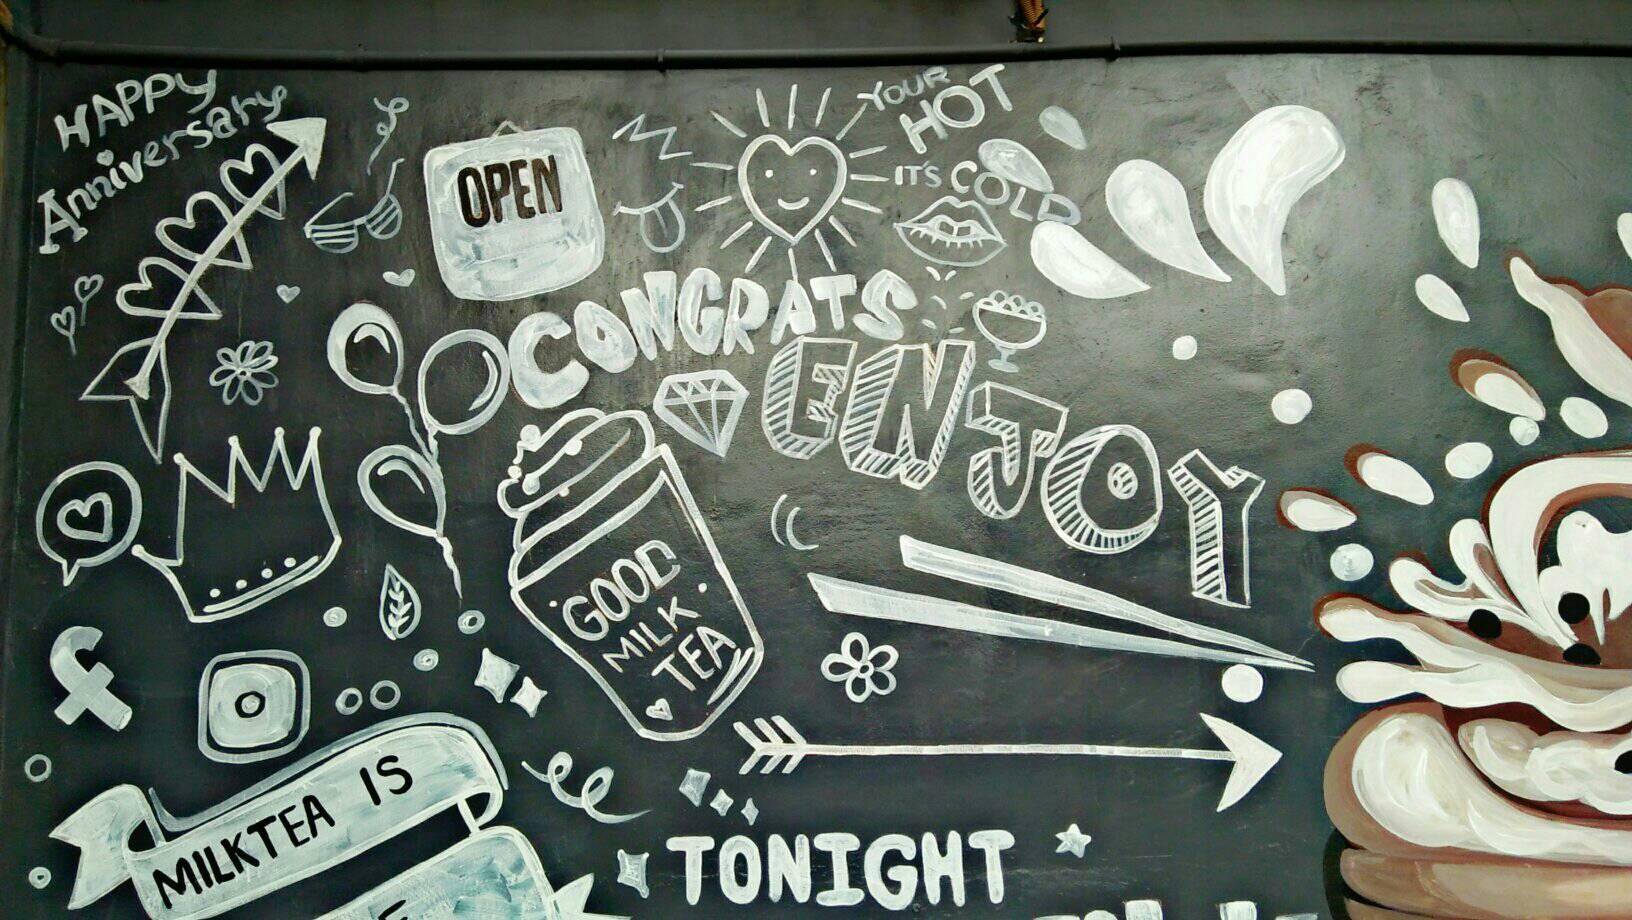 HAPPY
Anniversary
OPEN
YOUR
HOT
IT'S COLD
CONGRATS
ENJOY
GOOD
MILK
TEA
MILKTEA IS
TONIGHT